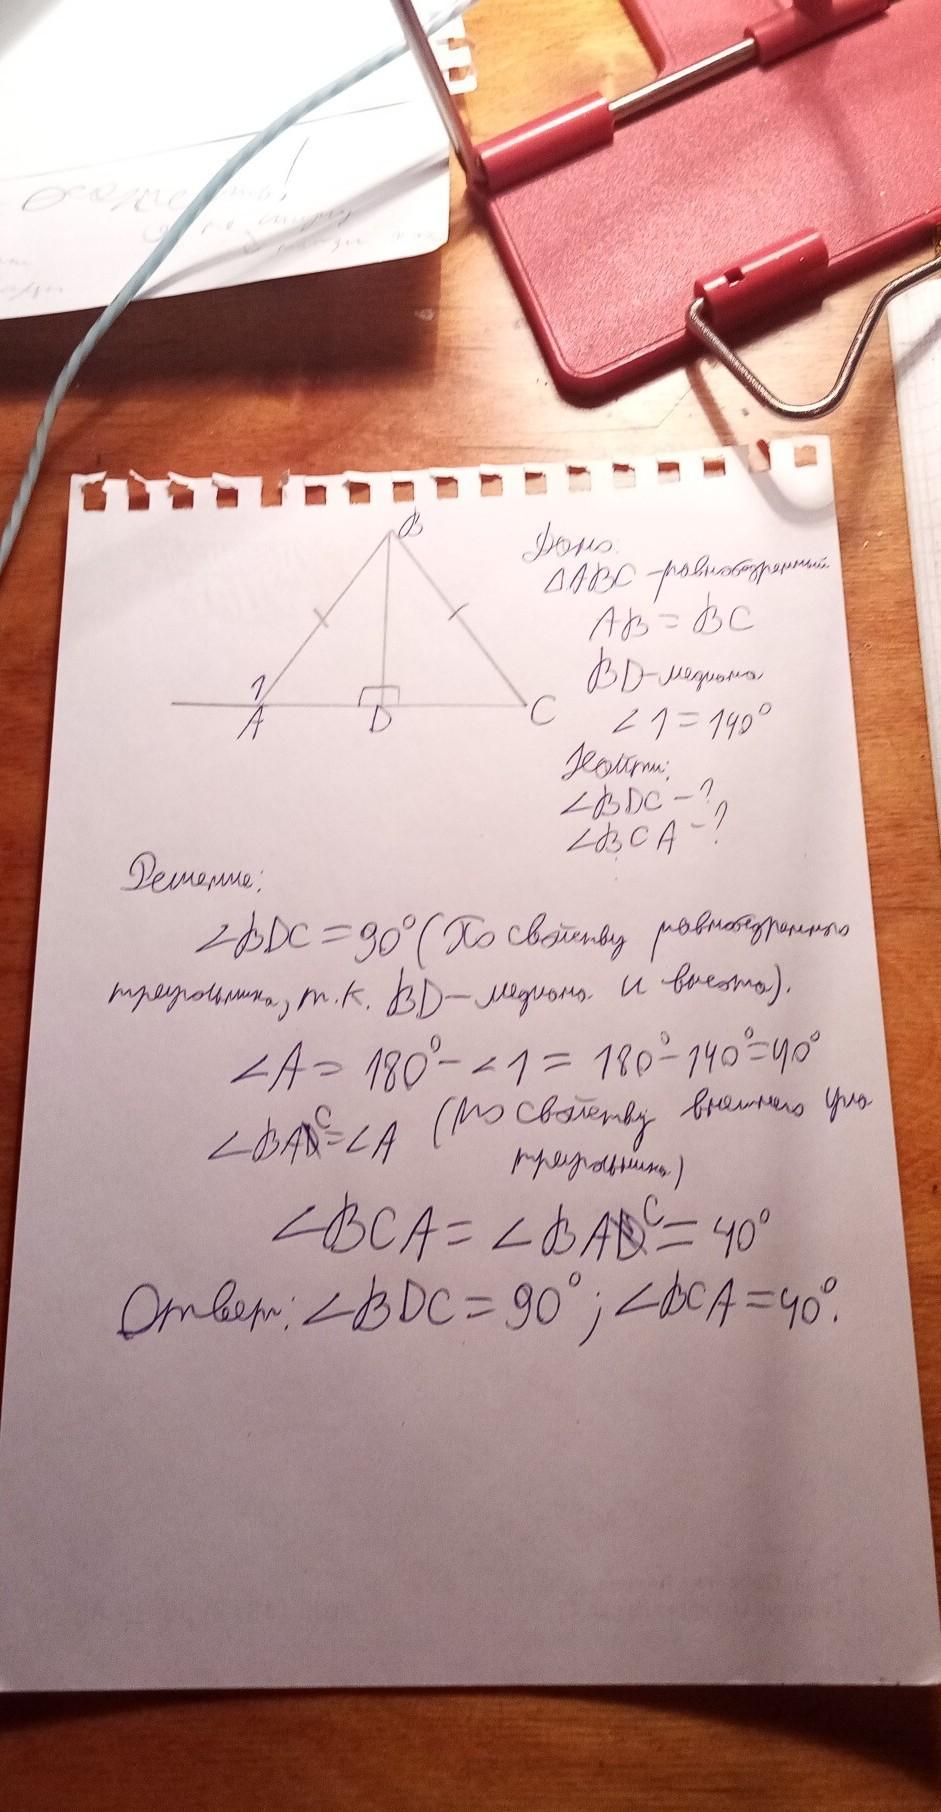 B
1
A
D
C
Дано:
△ABC-равнобедренный
AB = BC
BD-медиана
∠1=140°
Найти:
∠BDC-?
∠BCA-?
Решение:
∠BDC=90° (По свойству равнобедренного
треугольника, т.к. BD-медиана и высота).
∠A= 180°-∠1= 180°-140°=40°
(По свойству внешнего угла
∠BAC=∠A
треугольника)
∠BCA=∠BAC=40°
Ответ: ∠BDC=90°; ∠BCA=40°.